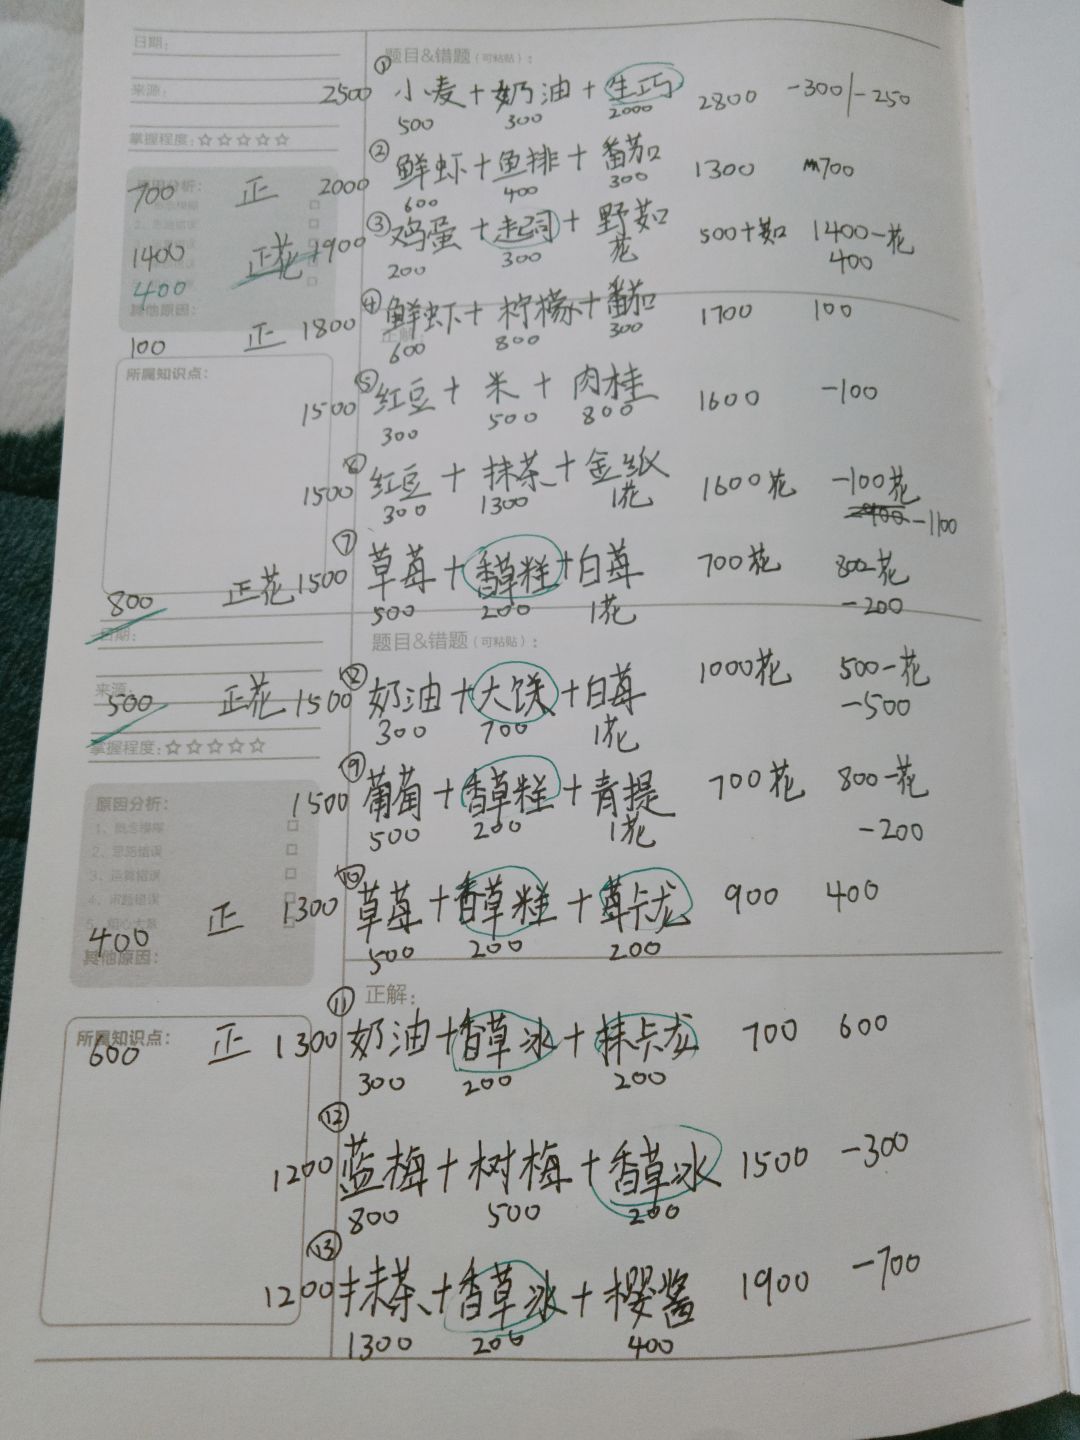 日期：
题目&错题（可粘贴）：
来源：
① 2500 小麦+奶油+生巧 2800 -300/-250
500 300 2000
掌握程度：☆☆☆☆☆
② 700 正 2000 鲜虾+鱼排+番茄 1300 700
600 400 300
原因分析：
③ 1400 正花 1900 鸡蛋+起司+野菇 500+菇 1400-花
400 200 300 花 400
其他原因：
④ 100 正 1800 鲜虾+柠檬+番茄 1700 100
600 800 300
正解：
所属知识点：
⑤ 1500 红豆+米+肉桂 1600 -100
300 500 800
⑥ 1500 红豆+抹茶+金纸 1600花 -100花
300 1300 1花 -1100
⑦ 800 正花 1500 草莓+香草糕+白莓 700花 800-花
500 200 1花 -200
日期：
题目&错题（可粘贴）：
来源：
⑧ 500 正花 1500 奶油+大馍+白莓 1000花 500-花
300 700 1花 -500
掌握程度：☆☆☆☆☆
⑨ 1500 葡萄+香草糕+青提 700花 800-花
500 200 1花 -200
原因分析：
1、概念模糊
2、思路错误
3、运算错误
4、审题错误
5、粗心大意
⑩ 400 正 1300 草莓+香草糕+莓卡龙 900 400
500 200 200
其他原因：
正解：
所属知识点：
⑪ 600 正 1300 奶油+香草冰+抹卡龙 700 600
300 200 200
⑫ 1200 蓝梅+树梅+香草冰 1500 -300
800 500 200
⑬ 1200 抹茶+香草冰+樱酱 1900 -700
1300 200 400